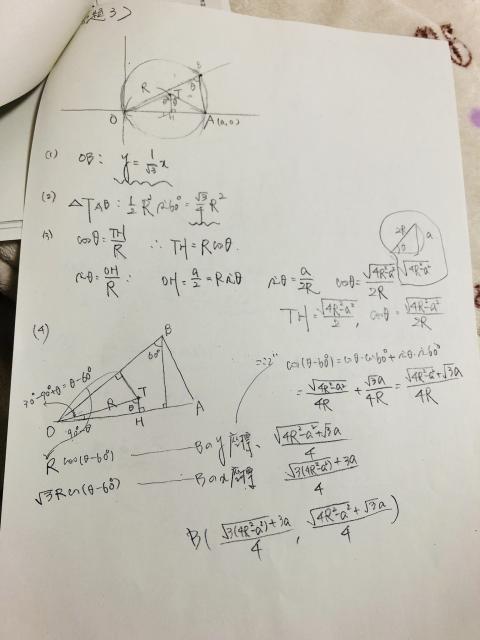 題3)
R
B
θ
T
O
H
A(a,0)
(1) OB: y = 1/√3 x
(2) △TAB: 1/2 R² sin60° = √3/4 R²
(3) cosθ = TH/R ∴ TH = Rcosθ.
2R
a
θ
√4R²-a²
sinθ = OH/R : OH = a/2 = R sinθ
sinθ = a/2R cosθ = √4R²-a²/2R
TH = √4R²-a²/2, cosθ = √4R²-a²/2R
(4)
B
60°
=θ-60°
R
T
θ
O
90°-θ
H
A
cos(θ-60°) = cosθ·cos60° + sinθ·sin60°
= √4R²-a²/4R + √3a/4R = √4R²-a²+√3a/4R
R cos(θ-60°) Bのy座標、 √4R²-a²+√3a/4
√3R cos(θ-60°) Bのx座標 √3(4R²-a²)+3a/4
B( √3(4R²-a²)+3a/4 , √4R²-a²+√3a/4 )